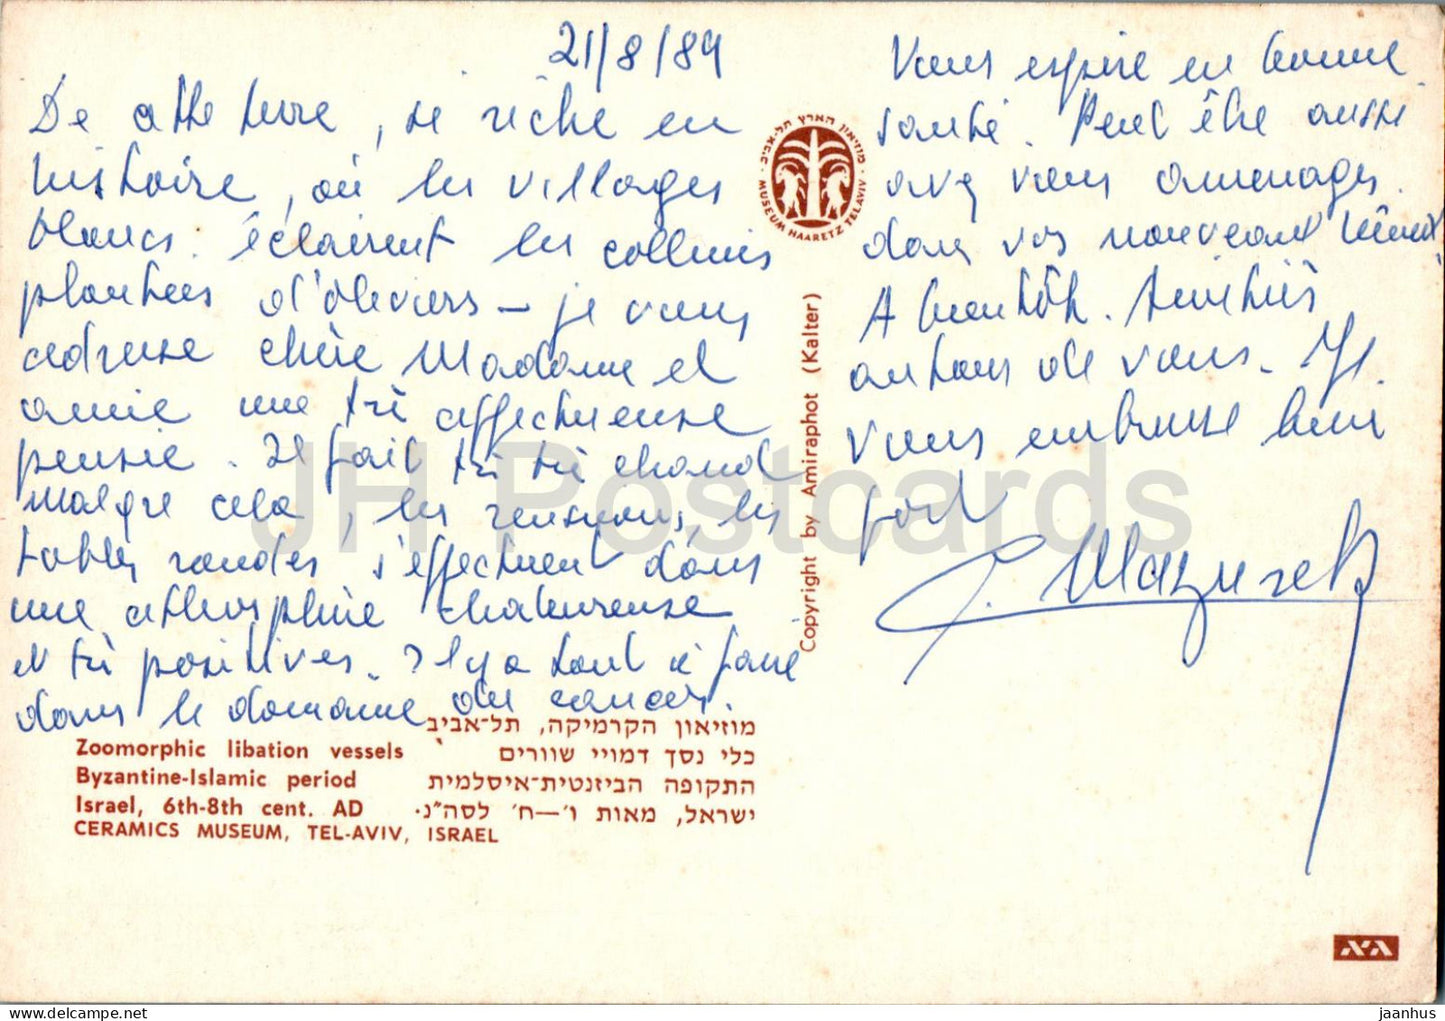 21/8/89
De cette terre, si riche en
histoire, où les villages
blancs éclairent les collines
plantées d'oliviers - je vous
adresse chère Madame et
amie une très affectueuse
pensée. Il fait très très chaud
malgré cela, les réunions, les
tables rondes s'effectuent dans
une atmosphère chaleureuse
et très positives. Il y a tout à faire
dans le domaine du cancer.
Vous espère en bonne
santé. Peut être aussi
avez vous aménagés
dans vos nouveaux
A bientôt. Amitiés
autour de vous. Je
vous embrasse bien
fort
Mazurek
מוזיאון הארץ תל-אביב
MUSEUM HAARETZ TEL AVIV
Copyright by Amiraphot (Kalter)
JH Postcards
Zoomorphic libation vessels
Byzantine-Islamic period
Israel, 6th-8th cent. AD
CERAMICS MUSEUM, TEL-AVIV, ISRAEL
מוזיאון הקרמיקה, תל-אביב
כלי נסך דמויי שוורים
התקופה הביזנטית-איסלמית
ישראל, מאות ו'—ח' לסה"נ.
jaanhus